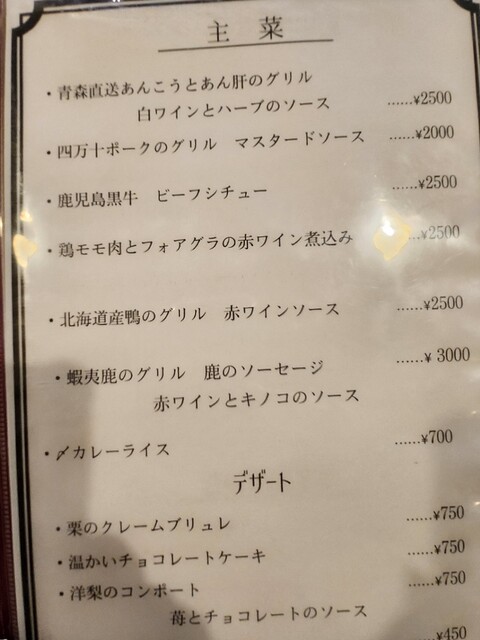 主 菜
・青森直送あんこうとあん肝のグリル
白ワインとハーブのソース ......¥2500
・四万十ポークのグリル マスタードソース ......¥2000
・鹿児島黒牛 ビーフシチュー ......¥2500
・鶏モモ肉とフォアグラの赤ワイン煮込み ...¥2500
・北海道産鴨のグリル 赤ワインソース ......¥2500
・蝦夷鹿のグリル 鹿のソーセージ ......¥ 3000
赤ワインとキノコのソース
・〆カレーライス ......¥700
デザート
・栗のクレームブリュレ ......¥750
・温かいチョコレートケーキ ......¥750
・洋梨のコンポート ......¥750
苺とチョコレートのソース
¥450